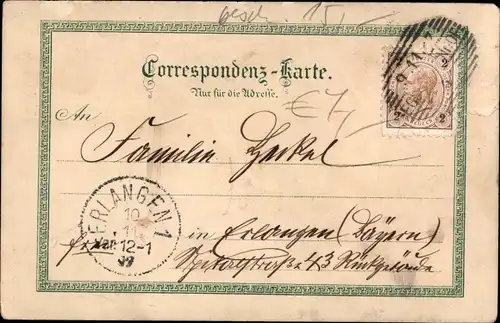 gesch. 15,-
Correspondenz-Karte.
Nur für die Adresse.
€ 7,-
An
Familie Heckel
in Erlangen (Bayern)
Spitalstraße 43 Rückgebäude
ERLANGEN 1
10
11
12-1
99
2
2 2